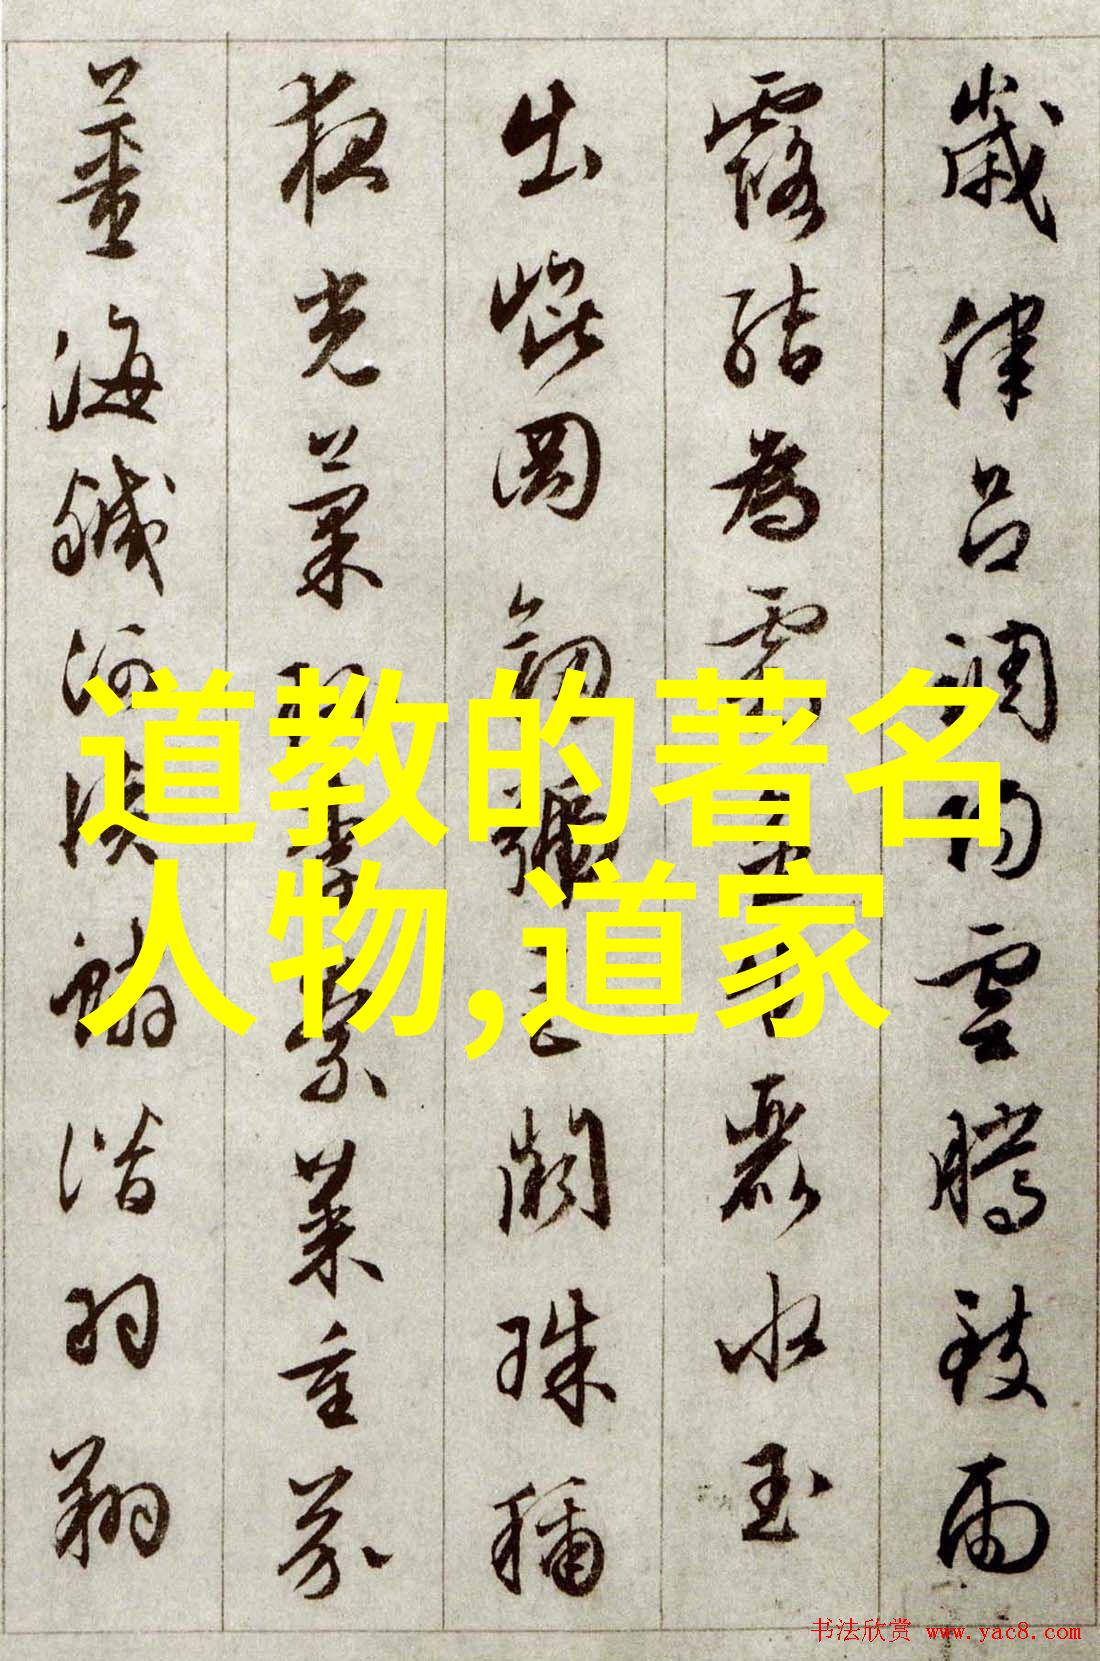 歲律呂調陽雲騰致雨
露結為霜金生麗水玉
出崐岡劍號巨闕珠稱
夜光菓珍李柰菜重芥
薑海鹹河淡鱗潛羽翔
道教的著名
人物,道家
书法欣赏 www.yac8.com